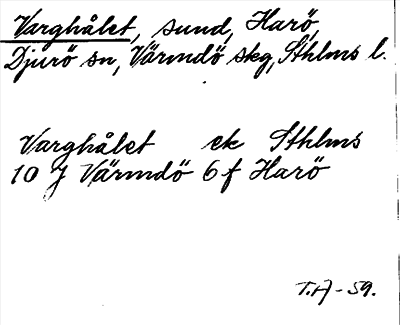 Varghålet, sund, Harö,
Djurö sn, Värmdö skg, Sthlms l.
Varghålet ek Sthlms
10 J Värmdö 6 f Harö
T.A-59.